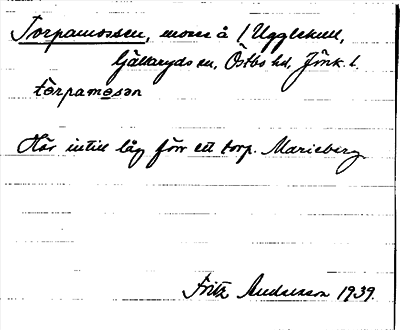 Torpamossen, mosse å 1 Ugglekull,
Gällaryds sn, Östbo hd, Jönk. l.
tɵrpamosən
Här intill låg förr ett torp. Marieberg
Fritz Andersson 1939.